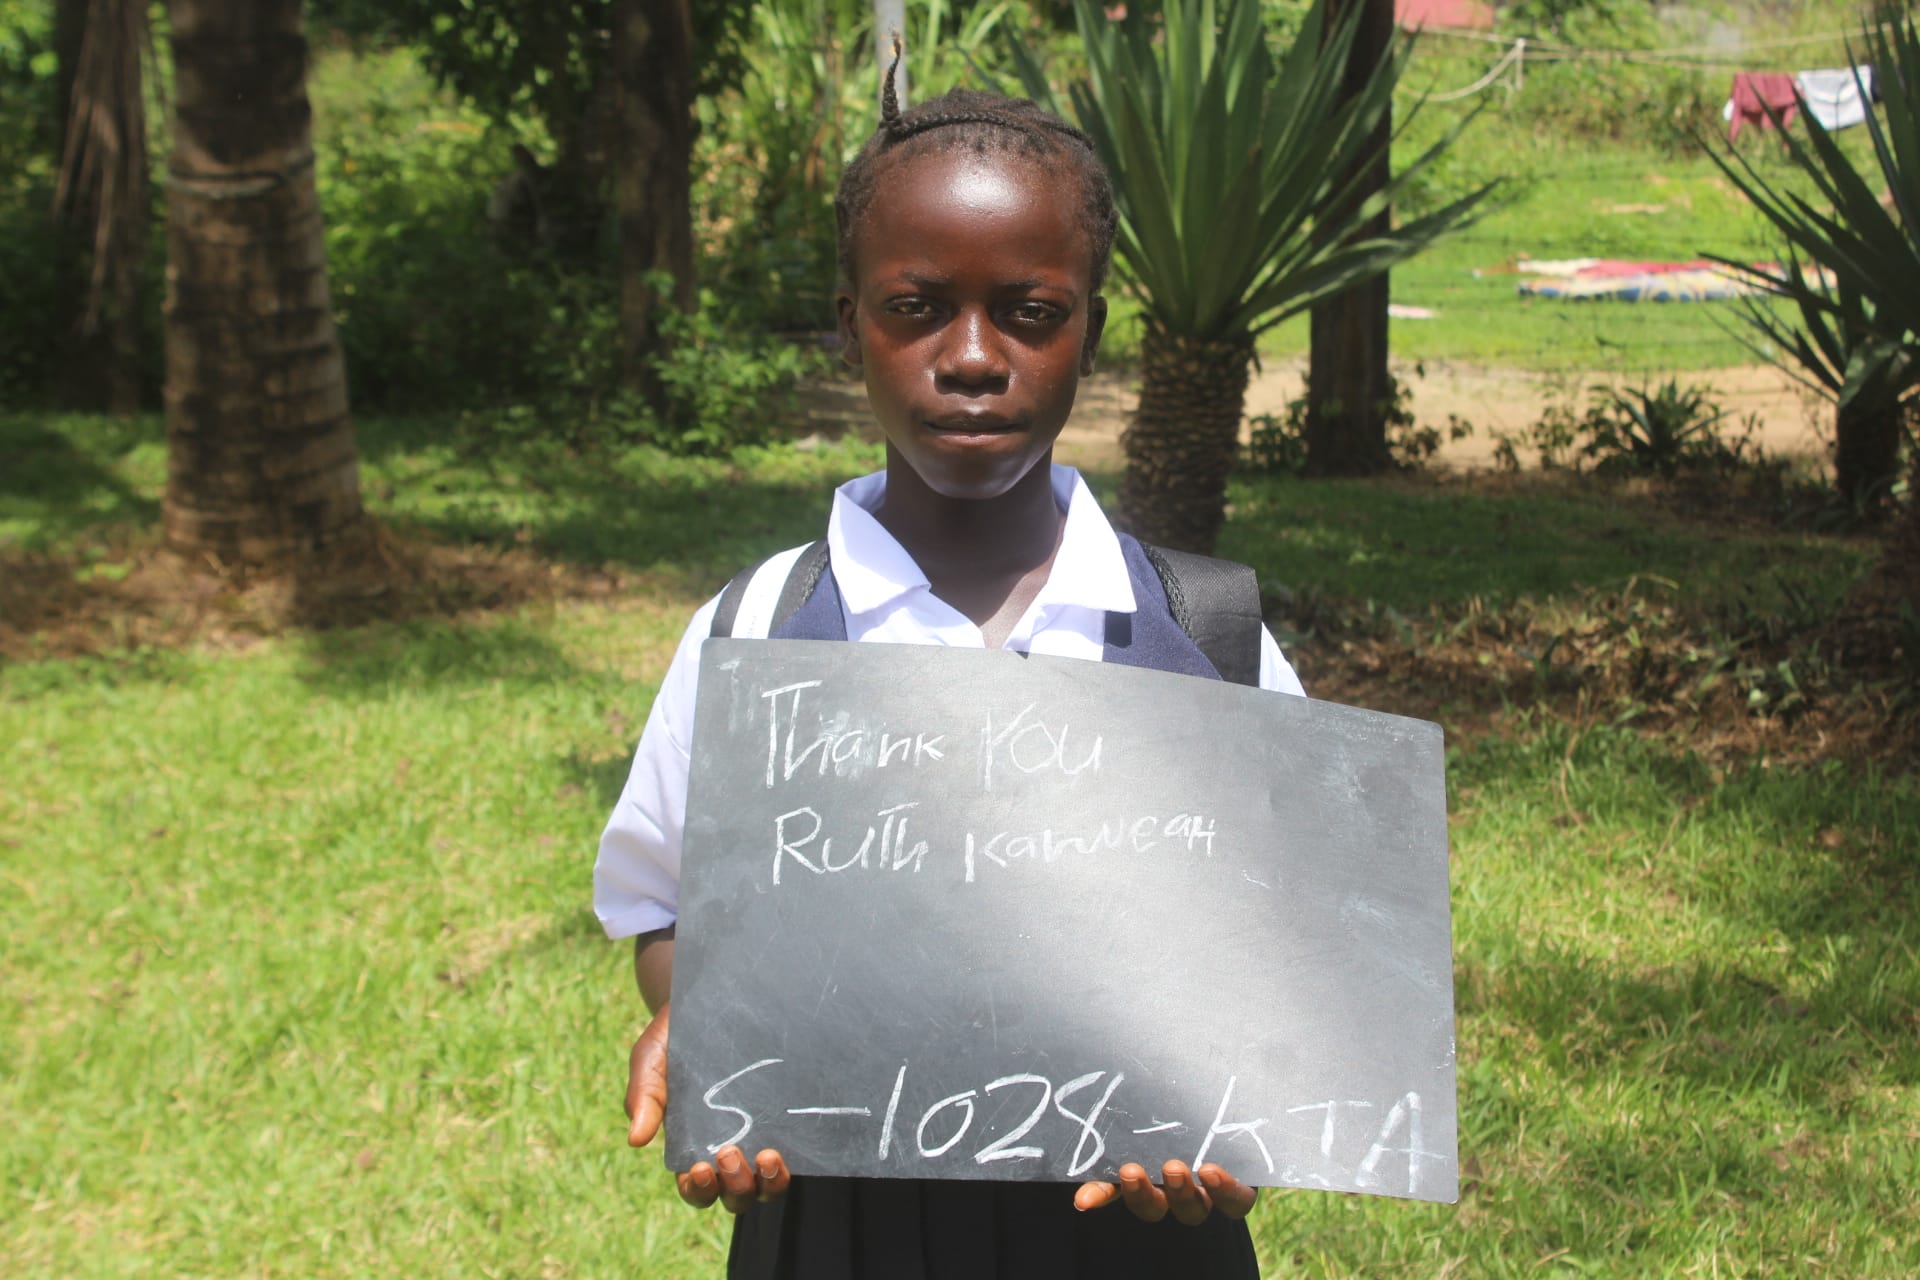 Thank You
Ruth Karweah
S-1028-KTA